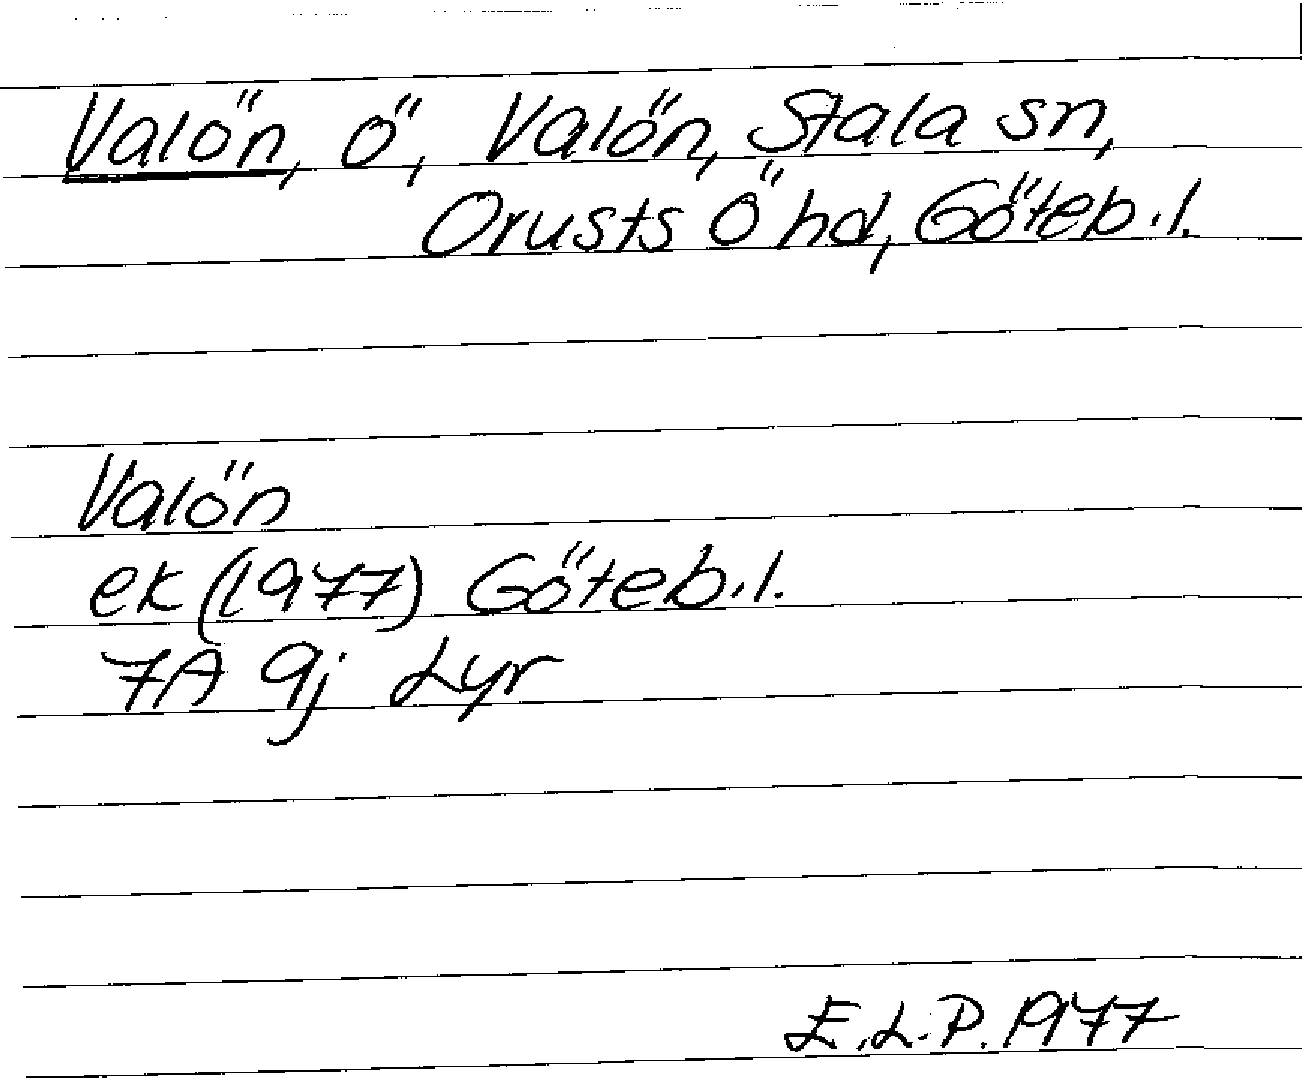 Valön, ö, Valön, Stala sn,
Orusts Ö hd, Göteb.l.
Valön
ek (1977) Göteb.l.
7A 9j Lyr
E.L.P. 1977